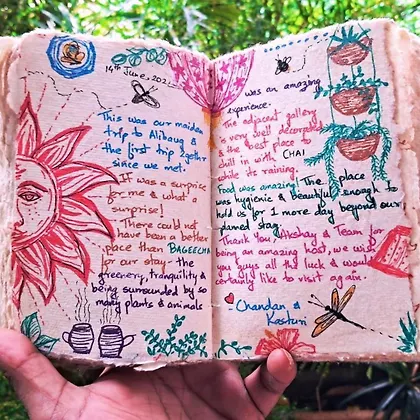 14th June, 202
This was our maiden
trip to Alibaug &
the first trip 2gether
since we met.
It was a surprise
for me & what a
surprise!
There could not
have been a better
place than BAGEECHA
for our stay - the
greenery, tranquility &
being surrounded by so
many plants & animals
was an amazing
experience.
The adjacent gallery
is very well decorated
& the best place
chill in with CHAI
while its raining.
Food was amazing! The place
was hygienic & beautiful enough to
hold us for 1 more day beyond our
planned stay.
Thank you, Akshay & Team for
being an amazing host, we wish
you guys all the luck & would
certainly like to visit again.
- Chandan &
Kasturi